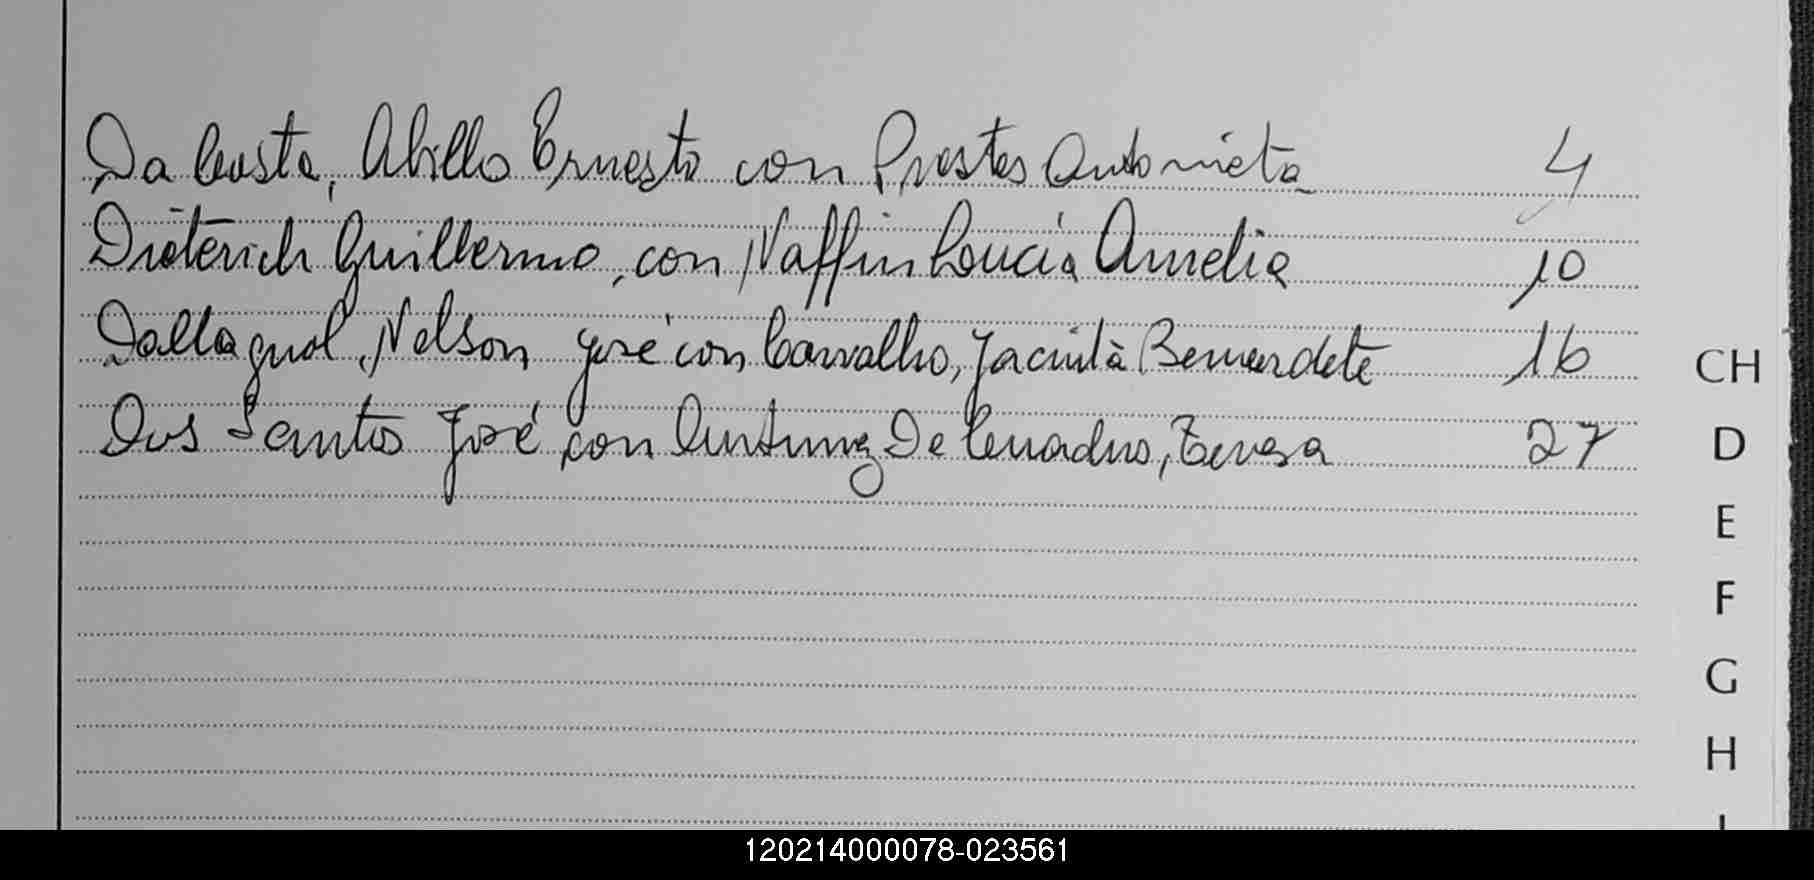 Da Costa, Abillo Ernesto con Prestes Antonieta 4
Dieterich Guillermo, con Naffin Loucia Amelia 10
Dallagnol, Nelson José con Carvalho, Jacinta Bernardete 16
Dos Santos José, con De Teresa 27
CH
D
E
F
G
H
120214000078-023561